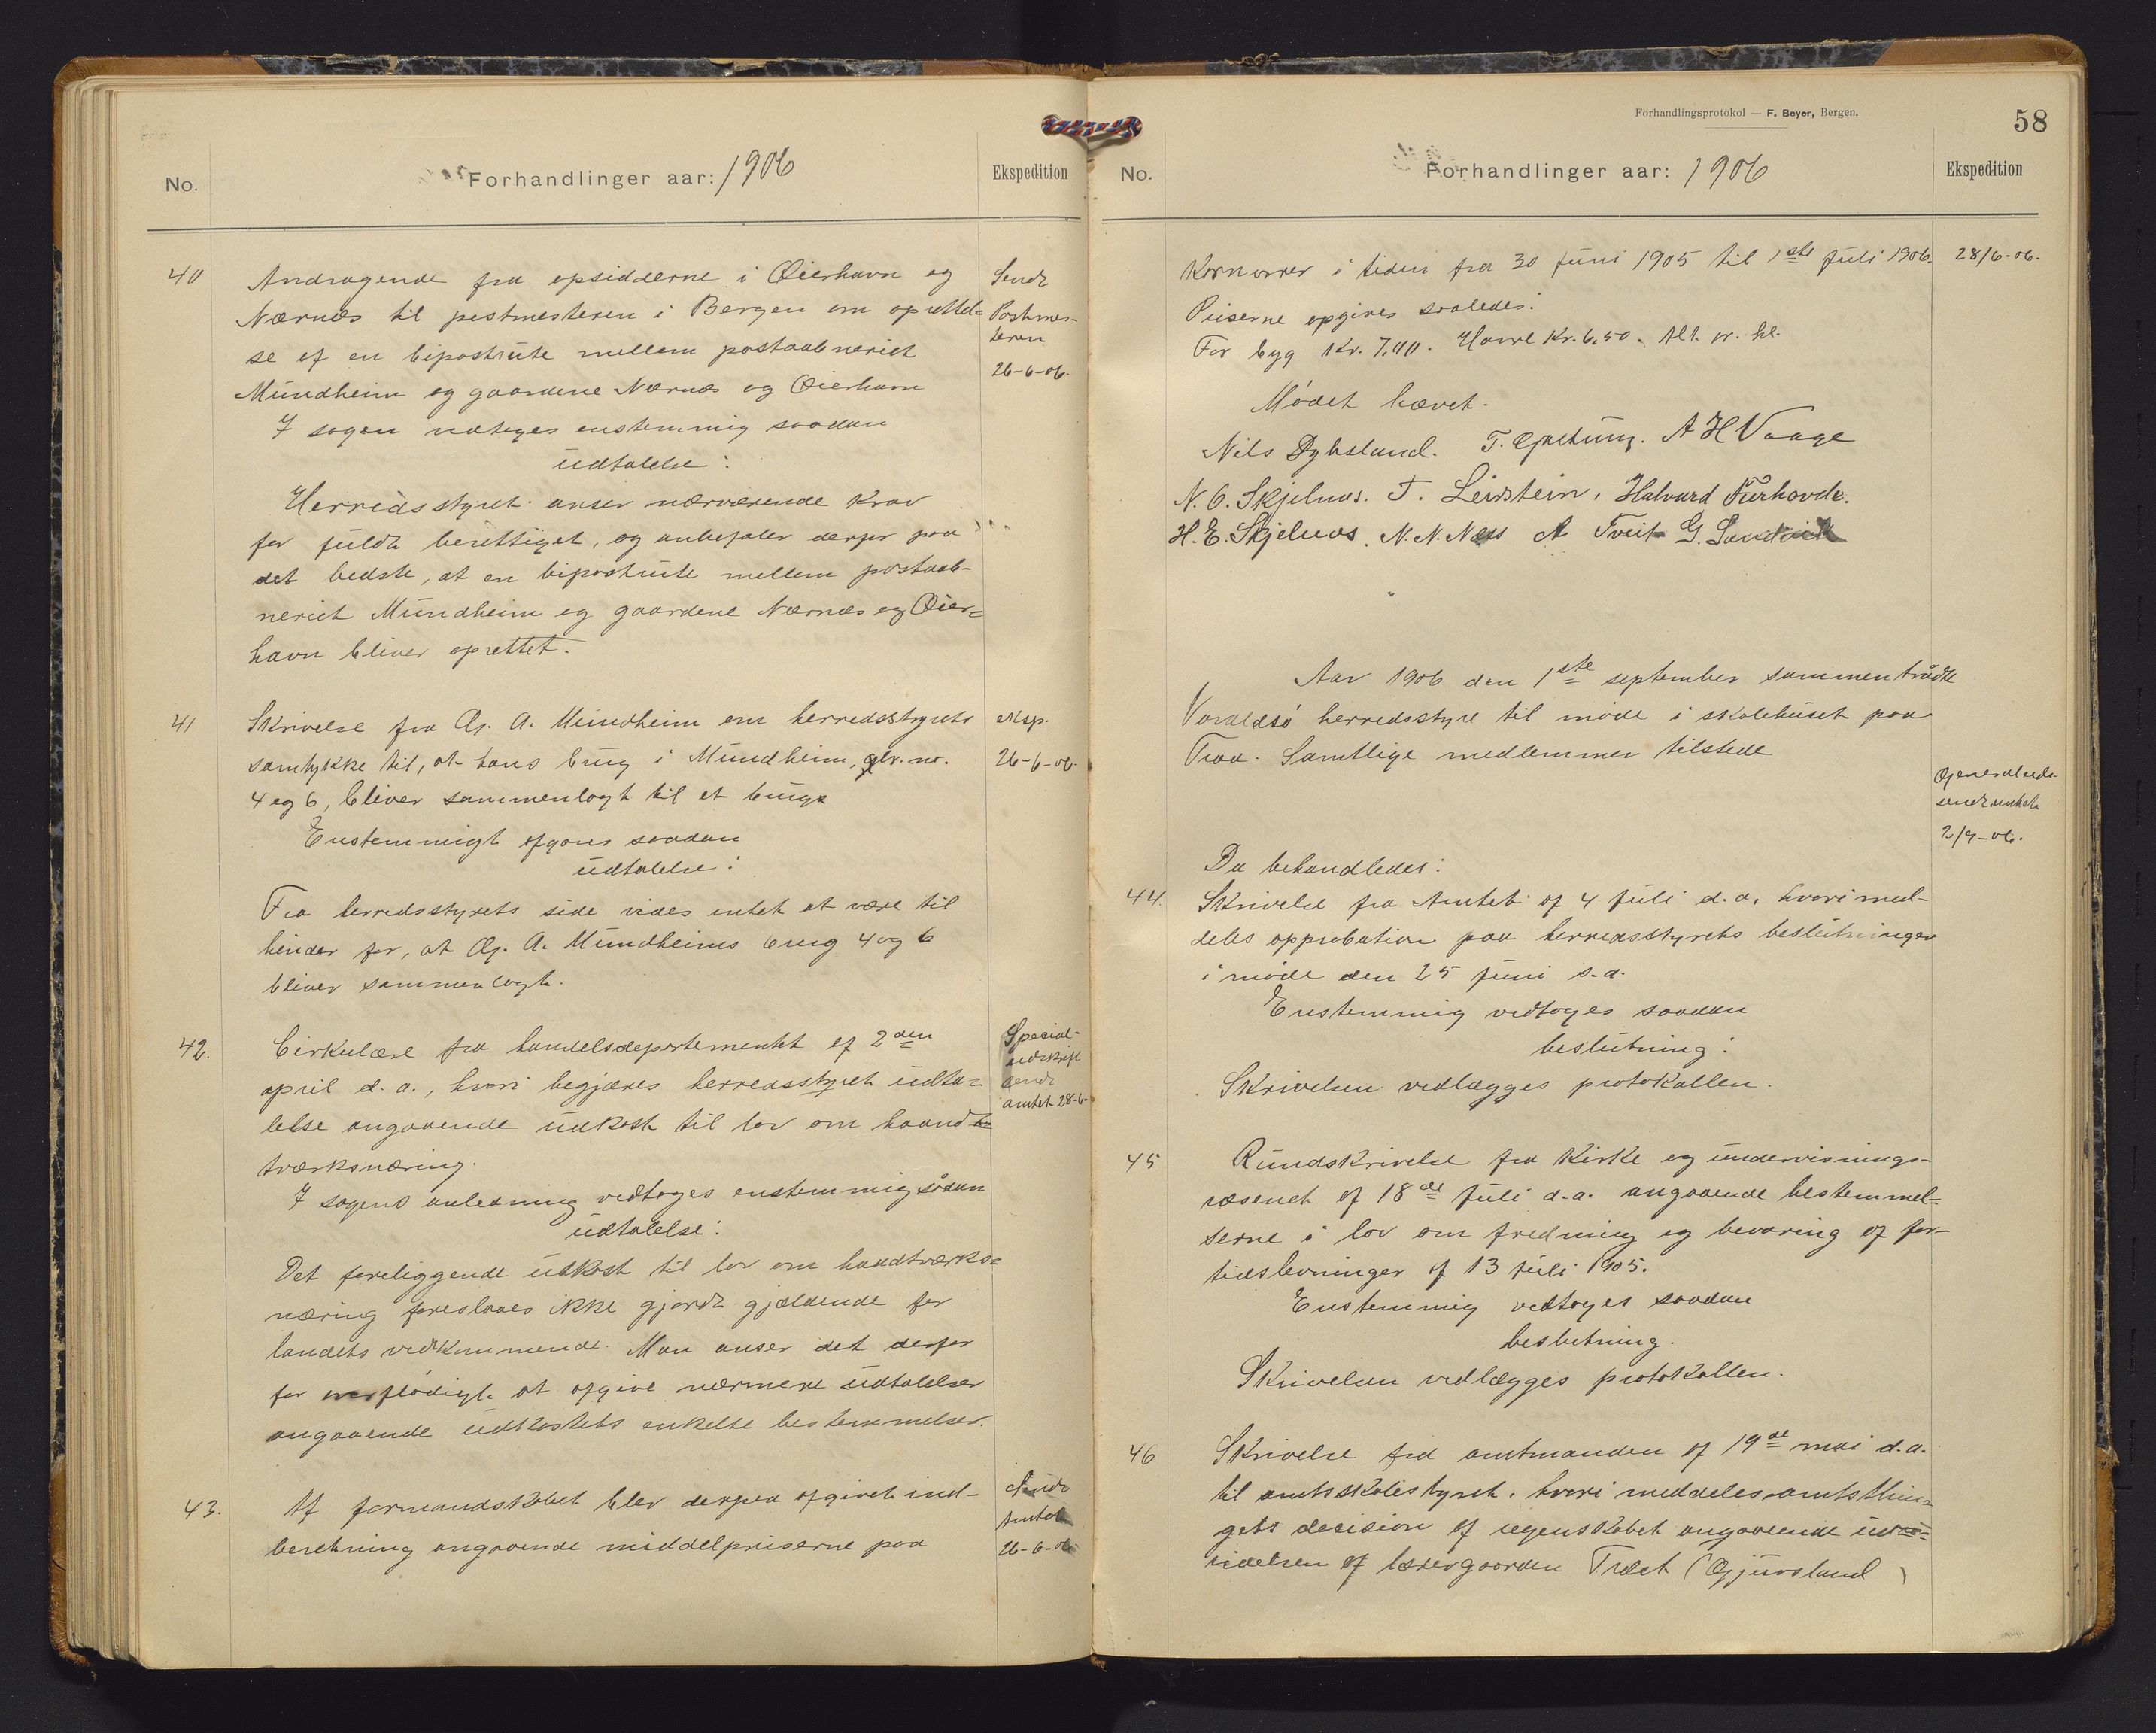 No.
Forhandlinger aar: 1906
Ekspedition
40
Andragende fra opsidderne i Øierhavn og
Nærnes til postmesteren i Bergen om oprettel=
se af en bipostrute mellem postaabneriet
Mundheim og gaardene Nærnes og Øierhavn
I sagen vedtoges enstemmig saadan
udtalelse:
Herredsstyret anser nærværende krav
for fuldt berettiget, og anbefaler derfor paa
det bedste, at en bipostrute mellem postaab-
neriet Mundheim og gaardene Nærnes og Øier=
havn bliver oprettet.
Sendt
Postmes-
teren
26-6-06.
41
Skrivelse fra G. A. Mundheim om herredsstyrets
samtykke til, at hans brug i Mundheim, glv. no.
4 og 6, bliver sammenlagt til et brug
Enstemmigt afgaves saadan
udtalelse:
Fra herredsstyrets side vides intet at være til
hinder for, at G. A. Mundheims brug 4 og 6
bliver sammenlagt.
eksp.
26-6-06.
42.
Cirkulære fra handelsdepartementet af 2den
april d. a., hvori begjæres herredsstyrets udta=
lelse angaaende udkast til lov om haand=
tværksnæring.
I sagens anledning vedtoges enstemmig sådan
udtalelse:
Det foreliggende udkast til lov om haandtværks=
næring foreslaaes ikke gjordt gjældende for
landets vedkommende. Man anser det derfor
for overflødigt at afgive nærmere udtalelser
angaaende udkastets enkelte bestemmelser.
Special-
udskrift
sendt
amtet 28-6-
43.
Af formandskabet blev derpaa afgivet ind-
beretning angaaende middelpriserne paa
Sendt
Amtet
26-6-06
Forhandlingsprotokol — F. Beyer, Bergen.
58
No.
Forhandlinger aar: 1906
Ekspedition
Kornvarer i tiden fra 30 juni 1905 til 1ste juli 1906.
28/6-06.
Priserne opgives saaledes:
For byg Kr. 7,00. Havre Kr. 6,50. Alt pr. hl.
Mødet hævet.
Nils Dybsland. T. Gjetung. A H Vaage
N. O. Skjelnes. T. Leirstein, Halvard Furhovde.
H. E. Skjelnes. N. N. Næss A Tveit G. Sandvik
Aar 1906 den 1ste september sammentrådte
Varaldsø herredsstyre til møde i skolehuset paa
Traa. Samtlige medlemmer tilstede
sendt amtet
2/9-06.
Da behandledes:
44.
Skrivelse fra Amtet af 4 juli d. a. hvori med-
deles approbation paa herredsstyrets beslutninger
i møde den 25 juni s. a.
Enstemmig vedtoges saadan
beslutning:
Skrivelsen vedlægges protokollen.
45
Rundskrivelse fra Kirke og undervisnings-
væsenet af 18de juli d. a. angaaende bestemmel=
serne i lov om fredning og bevaring af for-
tidslevninger af 13 juli 1905.
Enstemmig vedtoges saadan
beslutning.
Skrivelsen vedlægges protokollen.
46
Skrivelse fra amtmanden af 19de mai d. a.
til amtsskolestyret, hvori meddeles amtsthin=
gets decision af regnskabet angaaende
af lærergaarden Træet (Gjuvsland)